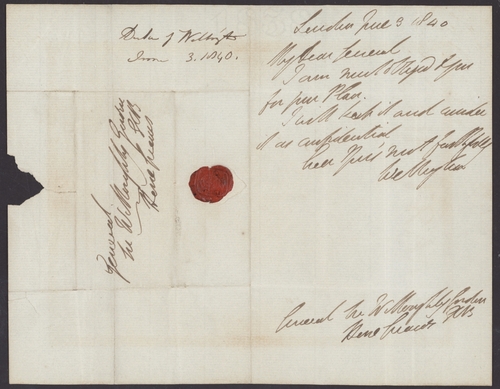 Duke of Wellington
June 3. 1840.
London June 3 1840
My Dear General
I am much obliged to you
for your Plan.
I will keep it and consider
it as confidential
Ever Yours most faithfully
Wellington
General
Sir Willoughby Gordon
GCB
General Sir Willoughby Gordon
GCB